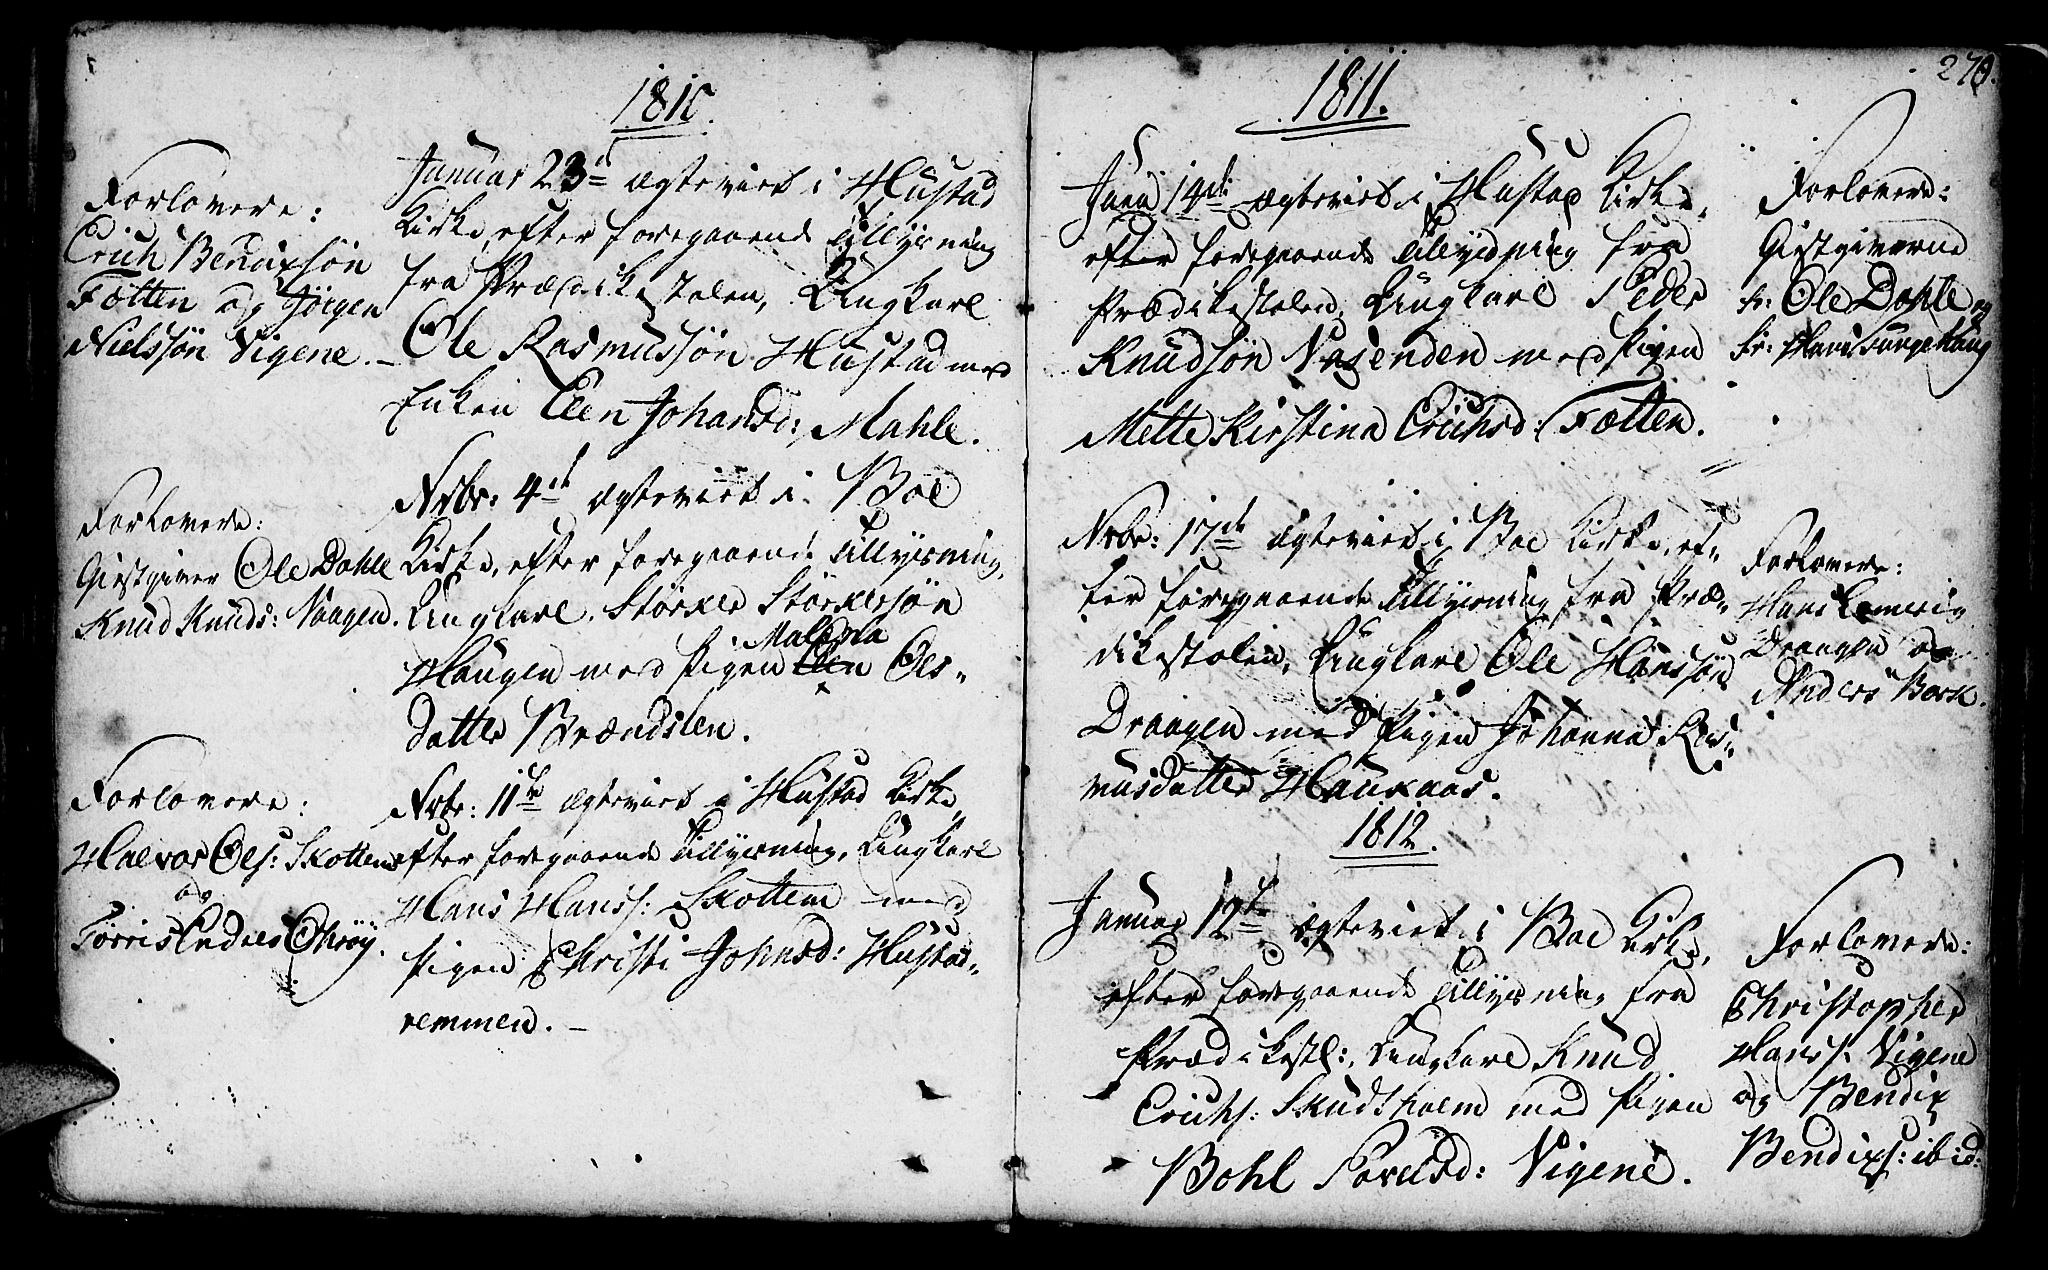 1810.
Forlovere:
Erich Bendixsøn
Fætten og Jørgen
Nielssøn Vigene.
Januar 23d ægteviet i Hustad
Kirke, efter foregaaende Tillysning
fra Prædikestolen, Ungkarl
Ole Rasmussøn Hustad med
Enken Elen Johansd: Mahle.
Forlovere:
Giestgiver Ole Dahle
Knud Knuds: Vaagen.
Nvbr: 4de ægteviet i Boe
Kirke, efter foregaaende Tillysning,
Ungkarl Størker Størkersøn
Malena
Haugen med Pigen Elen Ols-
datter Brændslen.
Forlovere:
Halvor Ols: Skottem
og
Torris Endres
Nvbr: 11te ægteviet i Hustad Kirke,
efter foregaaende Tillysning, Ungkarl
Hans Hanss: Skottem med
Pigen Christi Johnsd: Hustad-
remmen.
270.
1811.
Juni 14de ægteviet i Hustad Kirke,
efter foregaaende Tillysning fra
Prædikestolen, Ungkarl Peder
Knudsøn Nasenden med Pigen
Mette Kirstina Erichsd: Fætten.
Forlovere:
Giestgiverne
hr: Ole Dahle og
hr: Hans
Nvbr: 17de ægteviet i Boe Kirke, ef-
ter foregaaende Tillysning fra Præ-
dikestolen, Ungkarl Ole Hanssøn
Draagen med Pigen Johanna Ras-
musdatter Haukaas.
Forlovere:
Hans
Draagen og
Anders Bork.
1812.
Januar 12te ægteviet i Boe Kirke,
efter foregaaende Tillysning fra
Prædikestl:, Ungkarl Knud
Erichs: Skudsholm med Pigen
Bohl Povelsd: Vigene.
Forlovere:
Christopher
Hanss: Vigene
og Bendix
Bendixs: ibid: